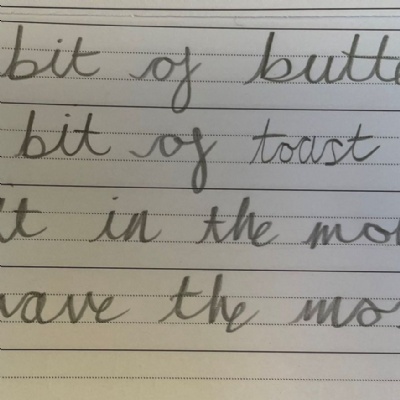 bit of butte
bit of toast
t in the mo
ave the mo